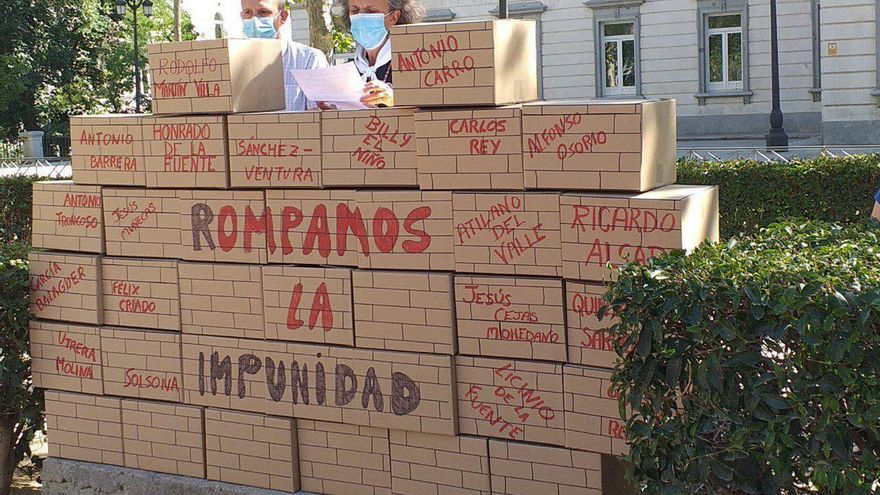 RODOLFO
MARTÍN VILLA
ANTONIO
CARRO
ANTONIO
BARRERA
HONRADO
DE LA
FUENTE
SÁNCHEZ-
VENTURA
BILLY
EL
NIÑO
CARLOS
REY
ALFONSO
OSORIO
ANTONIO
TRONCOSO
JESÚS
MUÑECAS
ROMPAMOS
ATILANO DEL
VALLE
RICARDO
ALGAR
GARCÍA
BALAGUER
FÉLIX
CRIADO
LA
JESÚS
CEJAS
MOHEDANO
UTRERA
MOLINA
SOLSONA
IMPUNIDAD
LICINIO
DE LA
FUENTE